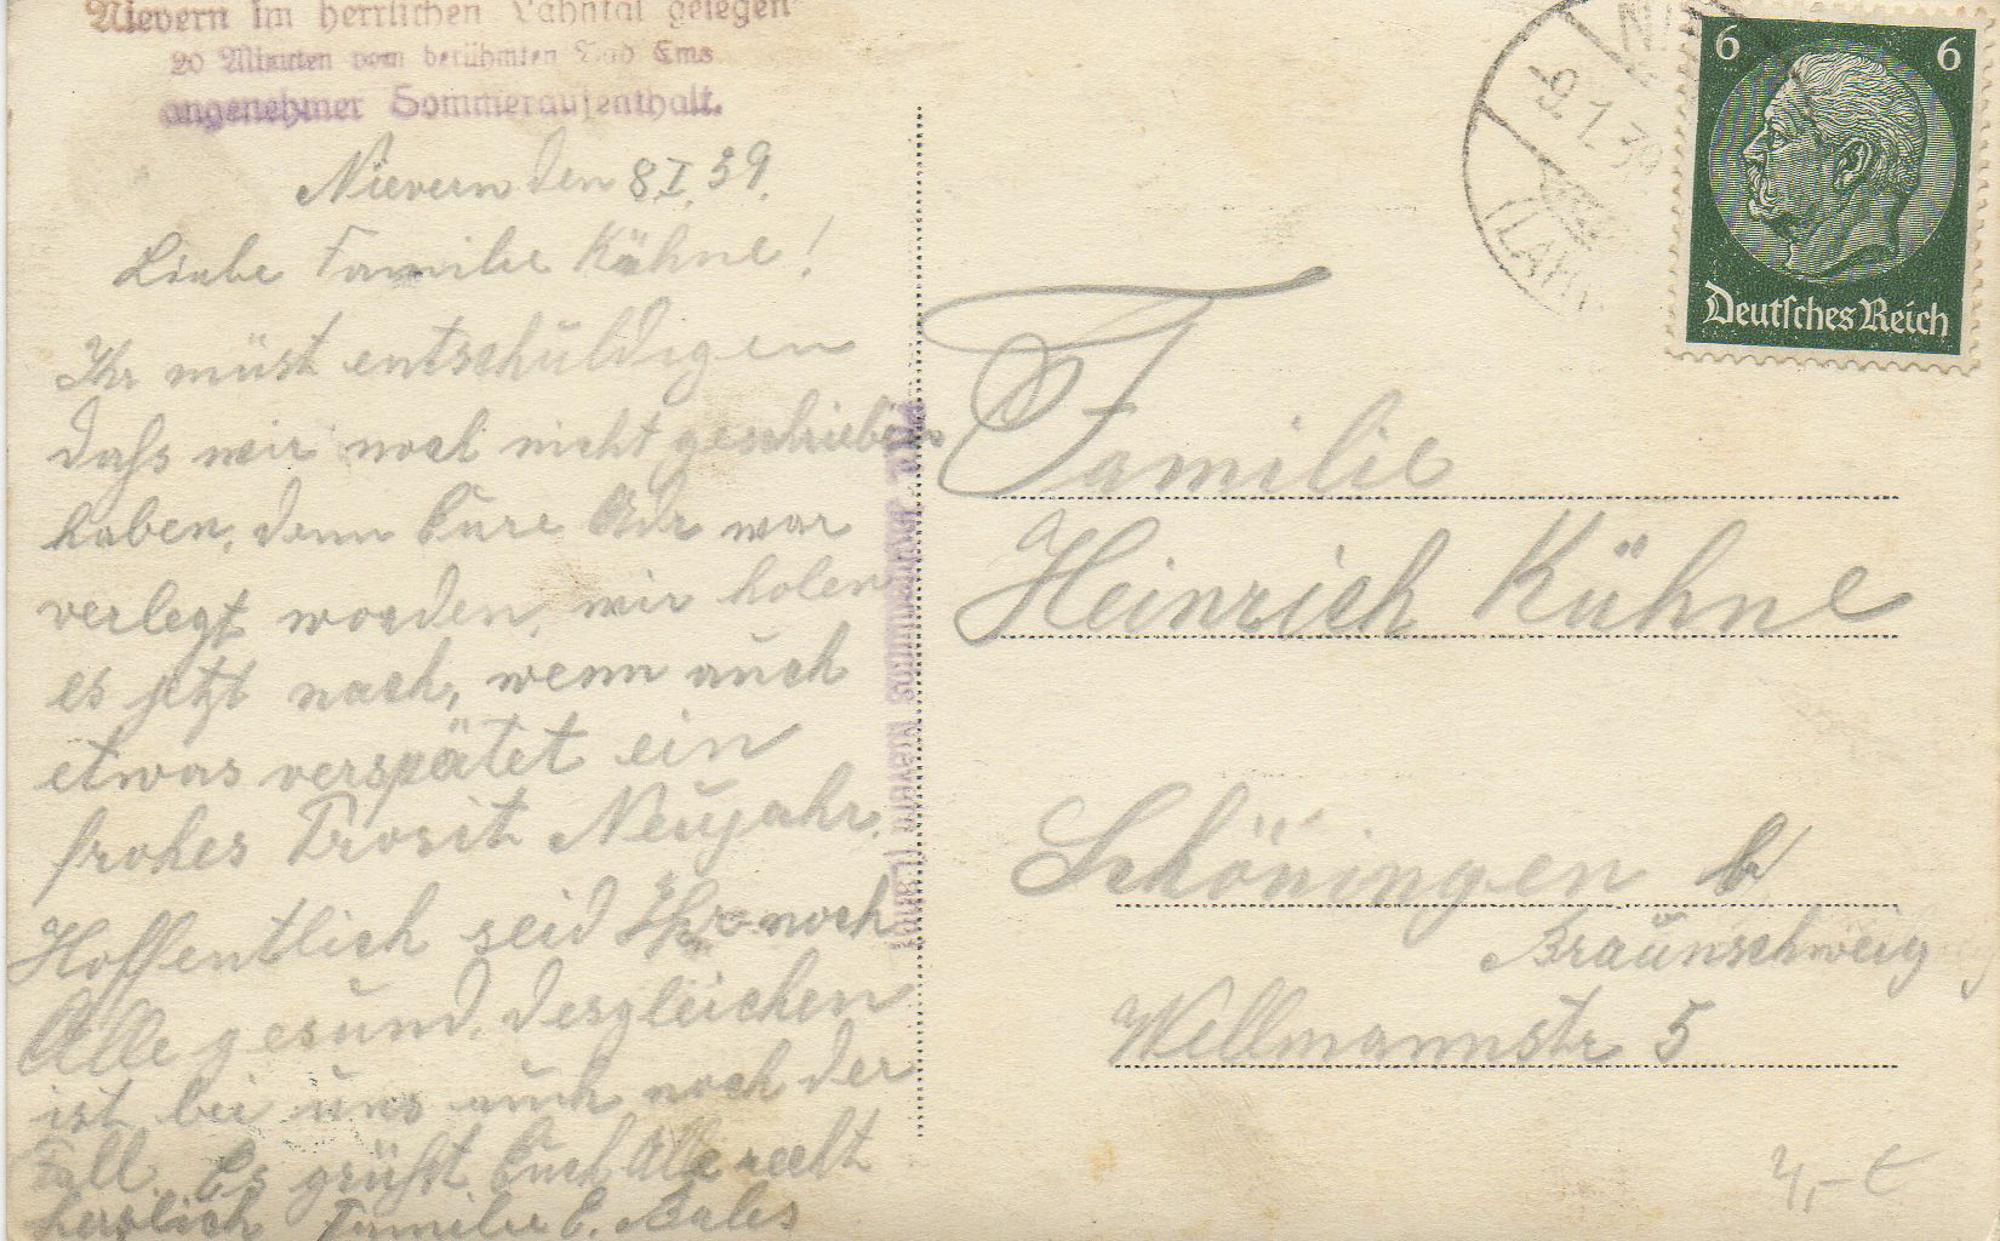 Nievern im herrlichen Lahntal gelegen
20 Minuten vom berühmten Bad Ems
angenehmer Sommeraufenthalt.
Nievern den 8.I.39.
Liebe Familie Kühne!
Ihr müst entschuldigen
dass wir noch nicht geschrieben
haben, denn Eure Adr war
verlegt worden, wir holen
es jetzt nach, wenn auch
etwas verspätet ein
frohes Prosit Neujahr.
Hoffentlich seid Ihr noch
Alle gesund, desgleichen
ist bei uns auch noch der
Fall. Es grüßt Euch Alle recht
herzlich Familie E.
Nievern (Lahn)
9.1.39
(LAHN
6 6
Deutsches Reich
Familie
Heinrich Kühne
Schöningen b
Braunschweig
Wellmannstr 5
4,- €